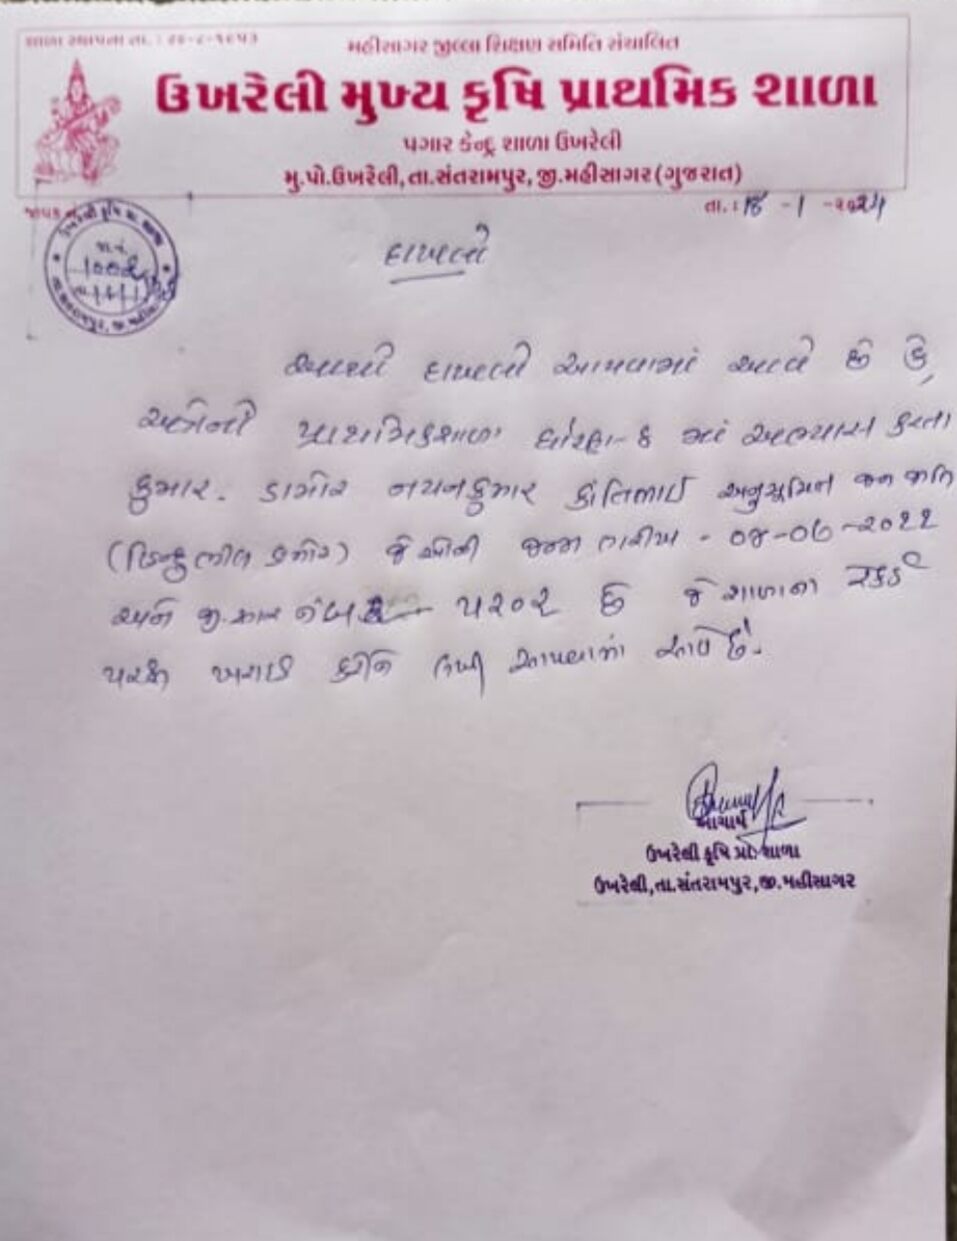 શાળા સ્થાપના તા. :
મહીસાગર જીલ્લા શિક્ષણ સમિતિ સંચાલિત
ઉખરેલી મુખ્ય કૃષિ પ્રાથમિક શાળા
પગાર કેન્દ્ર શાળા ઉખરેલી
મુ.પો.ઉખરેલી,તા.સંતરામપુર,જી.મહીસાગર(ગુજરાત)
જાવક નં.
તા. : - ૧ -૨૦૨૫
જા.નં.
દાખલો
આથી દાખલો આપવામાં આવે છે કે,
અત્રેની પ્રાથમિકશાળા ધોરણ- માં અભ્યાસ કરતા
કુમાર. ડામોર નયનકુમાર કાંતિભાઈ અનુસૂચિત જન જાતિ
(હિન્દુ ભીલ ડામોર) જેઓની જન્મ તારીખ -
અને જી.આર નંબર - ૫૨૦૨ છે જે શાળાના રેકર્ડ
પરથી ખરાઈ કરીને લખી આપવામાં આવે છે.
આચાર્ય
ઉખરેલી કૃષિ પ્રા૦ શાળા
ઉખરેલી,તા.સંતરામપુર,જી.મહીસાગર